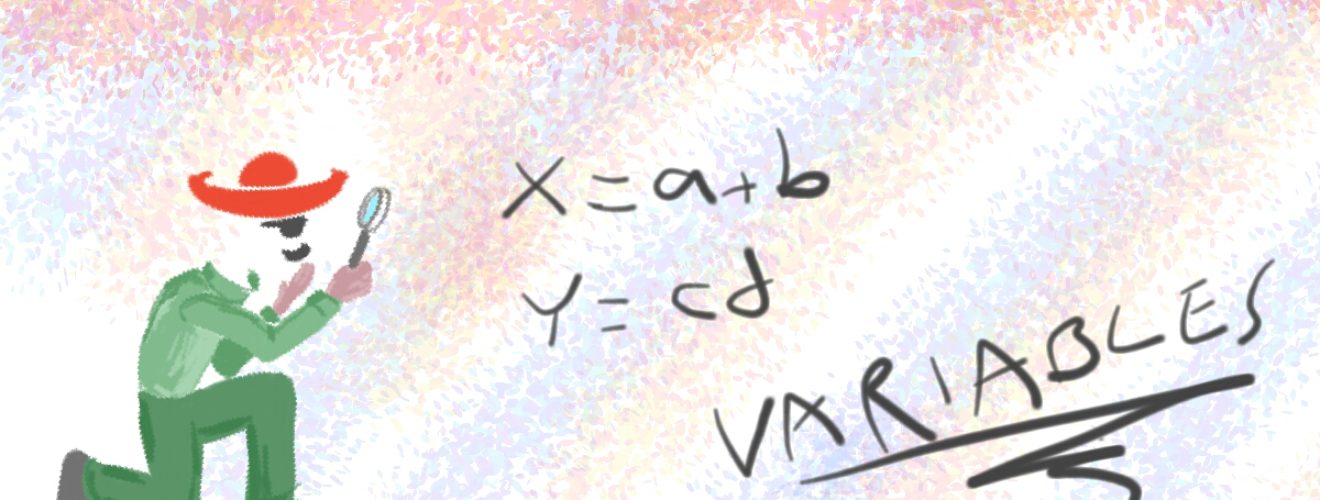 X = a + b
Y = cd
VARIABLES